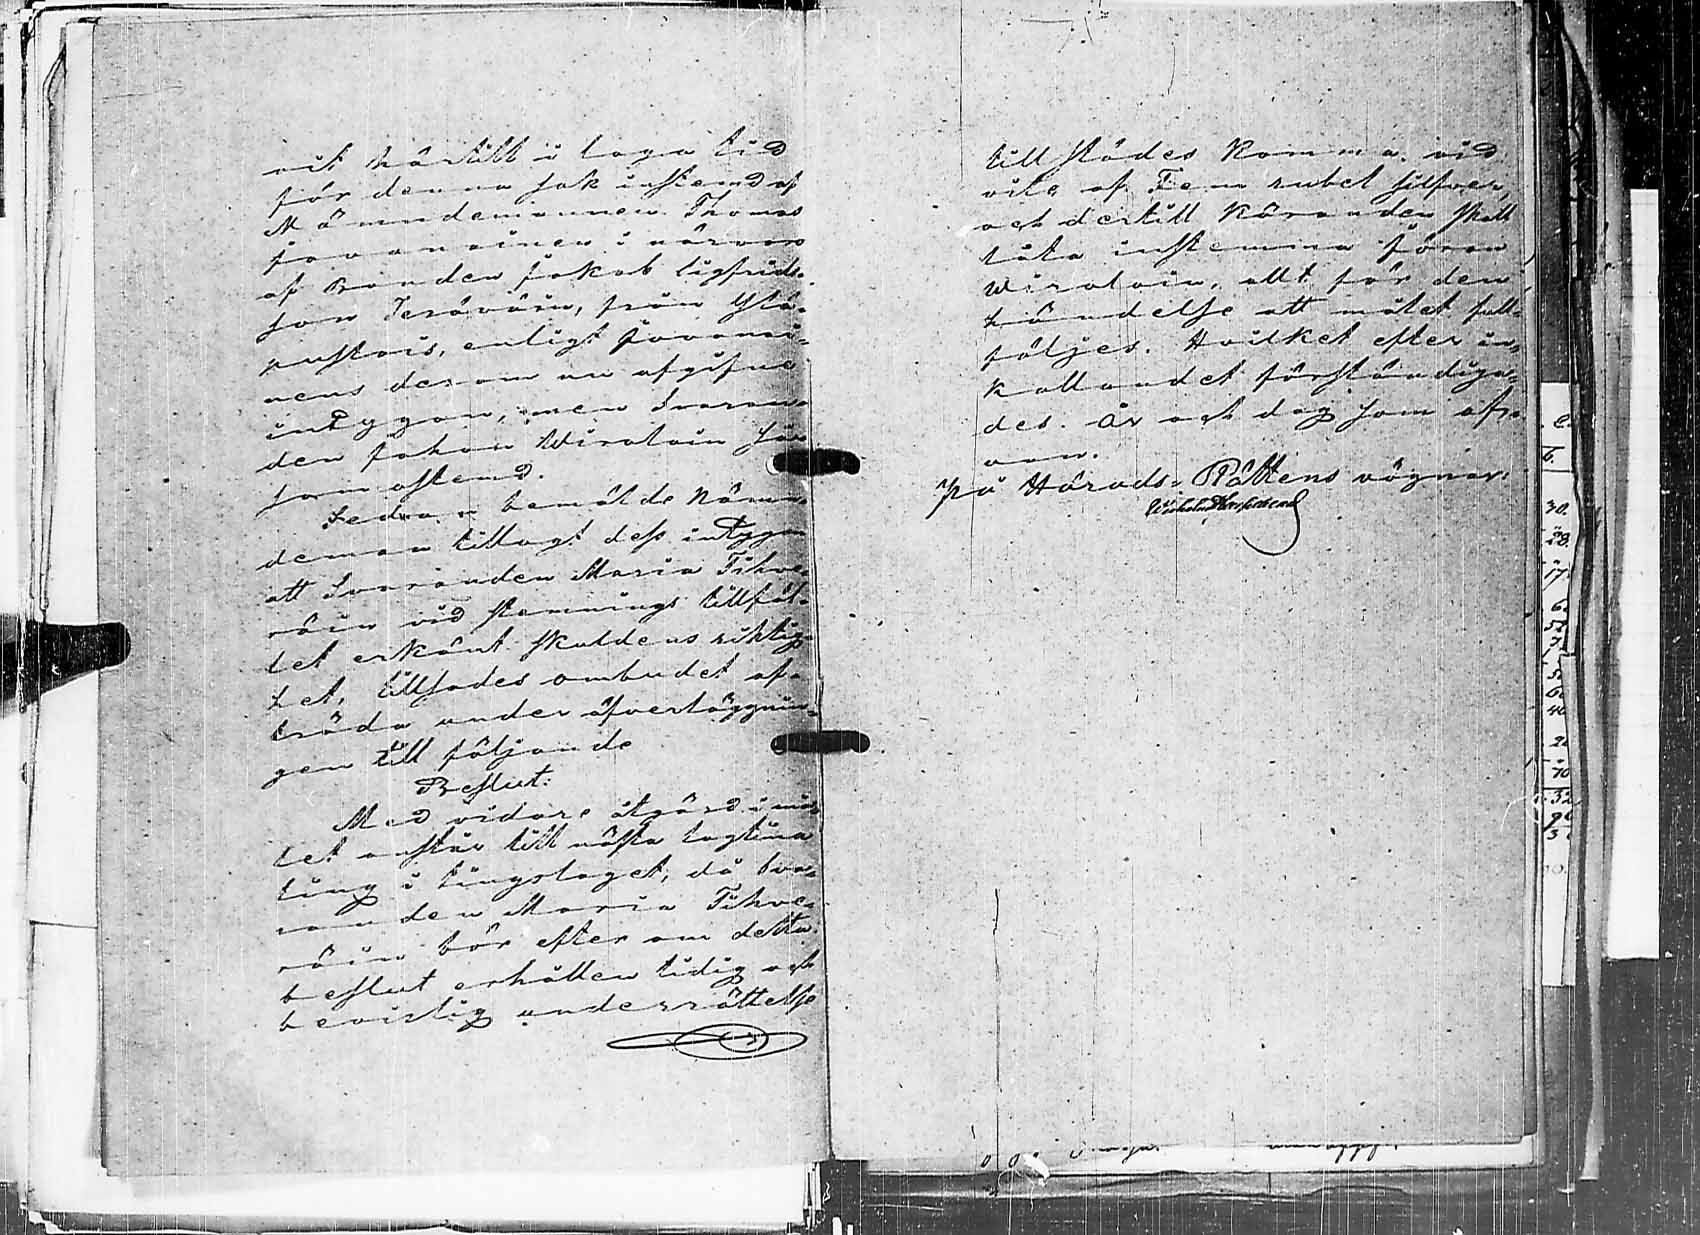 rit härtill i laga tid
för denna sak instemd af
Nämndemannen Thomas
Jovanainen i närvaro
af Bonden Jakob Sigfrids-
son Terävän, från Ylä-
pustois, enligt Jovanai-
nens derom nu afgifne
intygan, men Svaran-
den Johan Wirolain här
som ostemd.
Sedan bemälde Näm-
deman tillagt dess intygan
att Svaranden Maria Tihve-
räin vid stemnings tillfäl-
let erkänt skuldens riktig-
het, tillsades ombudet af-
träda under öfverläggnin-
gen till följande
Beslut:
Med vidare åtgärd i må-
let anstår till nästa lagtima
ting i tingslaget, då Sva-
randen Maria Tihve-
räin bör efter om detta
beslut erhållen tidig och
bevislig underrättelse
tillstädes komma vid
vite af Fem rubel silfver,
och dertill Käranden skall
låta instemma Johan
Wirolain, allt för den
händelse att målet full-
följes. Hvilket efter in-
kallandet förständiga-
des. År och dag som ofv-
van.
På Härads-Rättens vägnar: